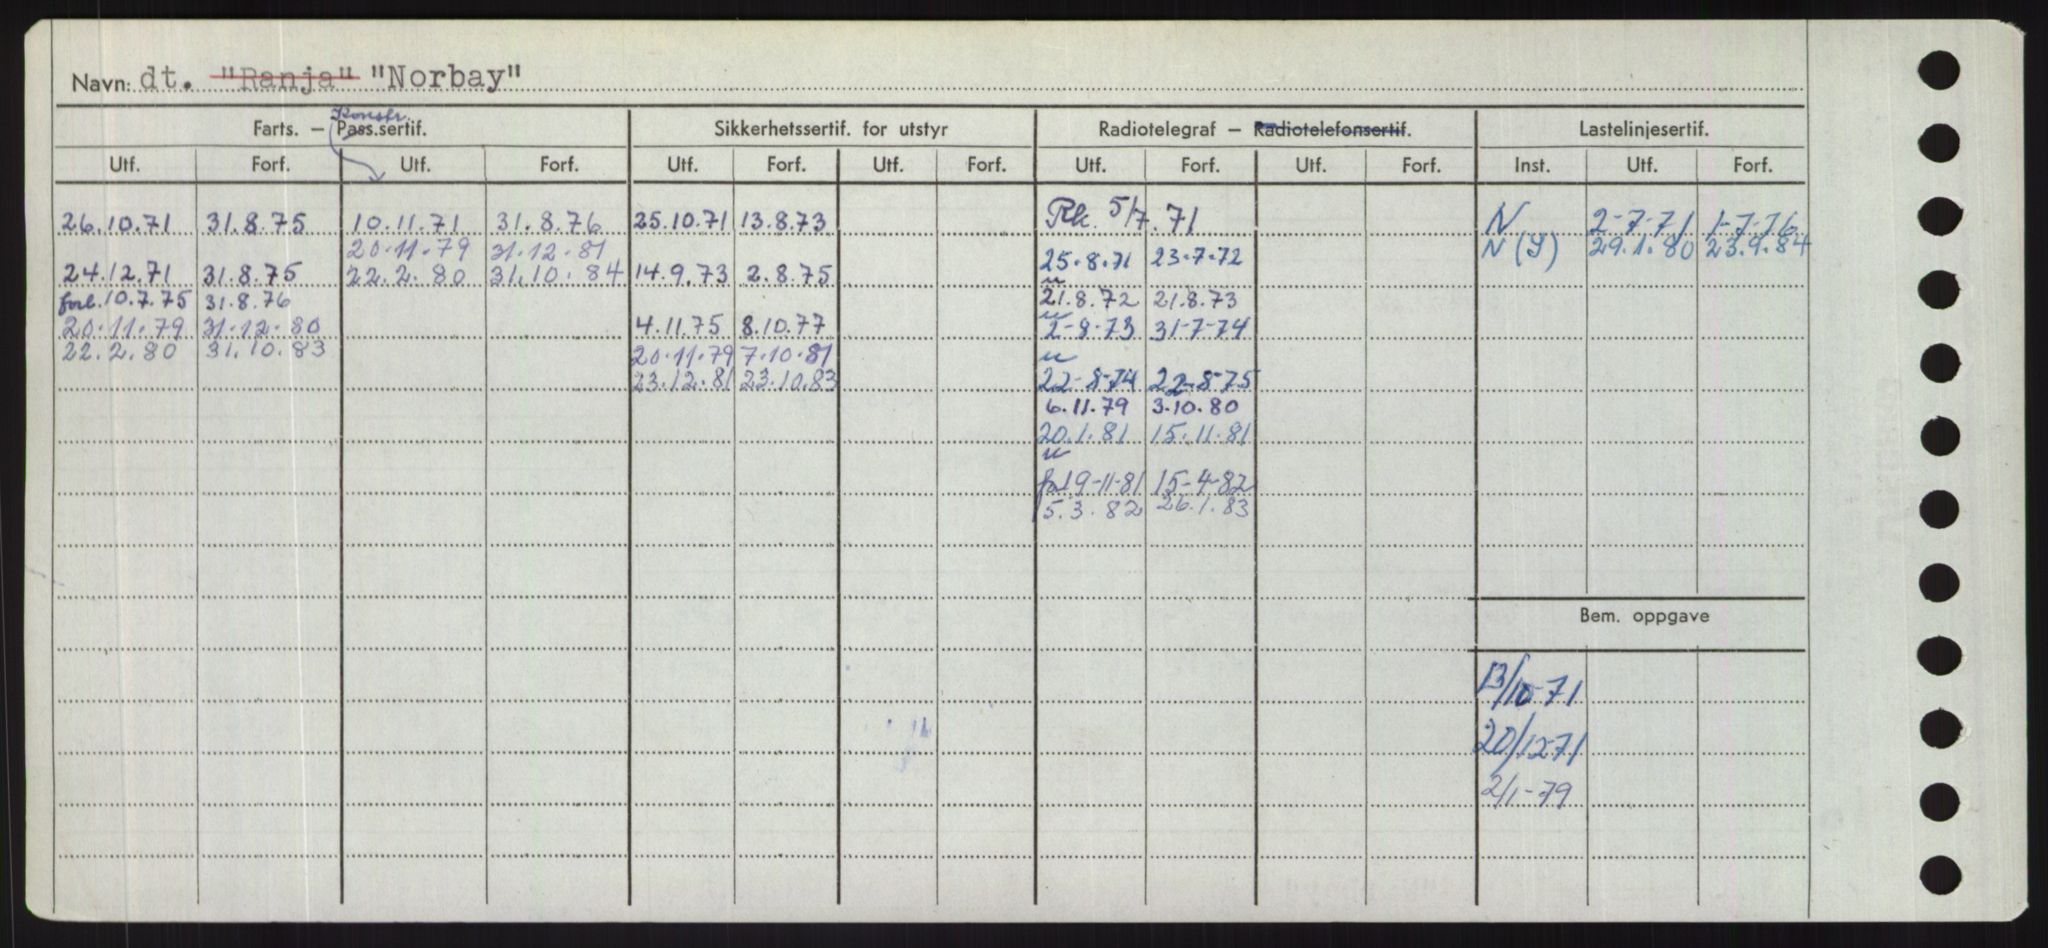 Navn: dt. "Ranja" "Norbay"
Konstr.
Farts. – Pass.sertif. Sikkerhetssertif. for utstyr Radiotelegraf – Radiotelefonsertif. Lastelinjesertif.
Utf. Forf. Utf. Forf. Utf. Forf. Utf. Forf. Utf. Forf. Utf. Forf. Inst. Utf. Forf.
26.10.71 31.8.75 10.11.71 31.8.76 25.10.71 13.8.73 Rk. 5/7.71 N 2-7-71 1-7-76
20.11.79 31.12.81 25.8.71 23.7.72 N (I) 29.1.80 23.9.84
24.12.71 31.8.75 22.2.80 31.10.84 14.9.73 2.8.75
forl. 10.7.75 31.8.76 21.8.72 21.8.73
20.11.79 31.12.80 4.11.75 8.10.77 2-8-73 31-7-74
22.2.80 31.10.83 20.11.79 7.10.81
23.12.81 23.10.83 22-8-74 22-8-75
6.11.79 3.10.80
20.1.81 15.11.81
19-11-81 15-4-82
5.3.82 26.1.83
Bem. oppgave
13/10-71
20/12-71
2/1-79